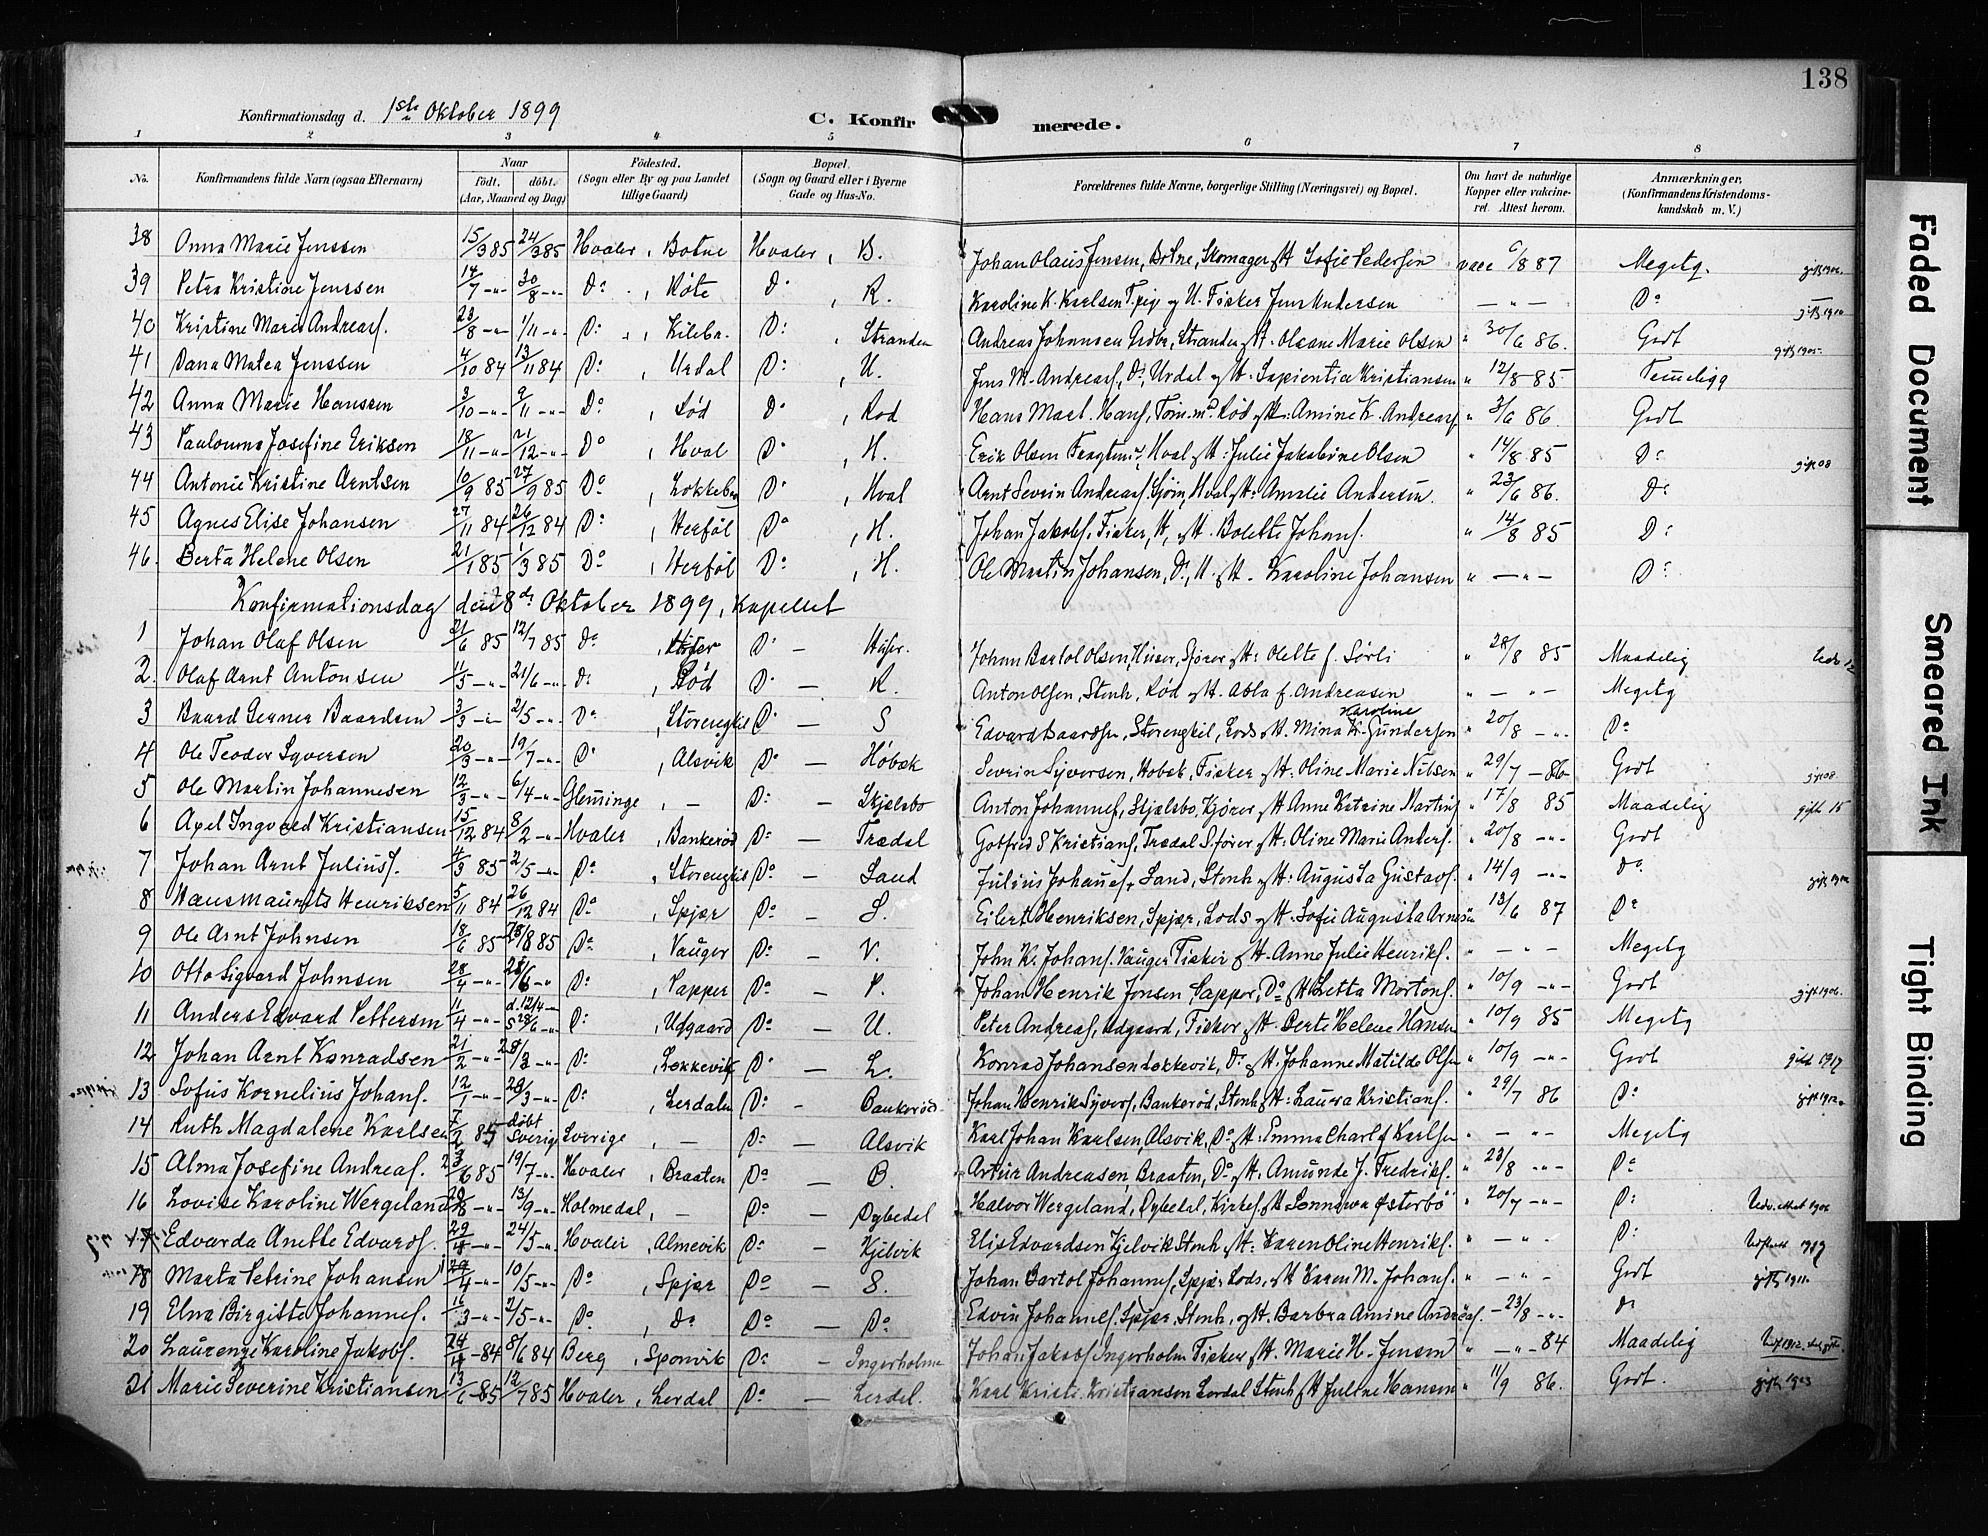 138
Konfirmationsdag d. 1ste Oktober 1899 C. Konfir merede.
1 2 3 4 5 6 7 8
No. Konfirmandens fulde Navn (ogsaa Efternavn) Naar födt. döbt. (Aar, Maaned og Dag) Födested. (Sogn eller By og paa Landet tillige Gaard) Bopæl. (Sogn og Gaard eller i Byerne Gade og Hus-No. Forældrenes fulde Navne, borgerlige Stilling (Næringsvei) og Bopæl. Om havt de naturlige Kopper eller vakcineret. Attest herom. Anmærkninger. (Konfirmandens Kristendomskundskab m. V.)
38 Anna Marie Jenssen 15/3 85 24/3 85 Hvaler, Botne Hvaler, B. Johan Olaus Jensen, Botne, Skomager & H. Sofie Pedersen vacc 6/8 87 Megetg.
39 Petra Kristine Jenssen 14/7 -"- 30/8 -"- Do, Röte Do, R. Karoline K. Karlsen Pige og U. Fisker Jens Andersen - " - Do
40 Kristine Marie Andreas. 23/8 -"- 1/11 -"- Do, Kilebu. Do, Stranden Andreas Johansen Grdbr, Stranden & H. Oleane Marie Olsen " 30/6 86. Godt
41 Dana Matea Jenssen 4/10 84 13/11 84 Do, Urdal Do, U. Jens M. Andreas., Do, Urdal & H. Sapientia Kristiansen " 12/8 85 Temeligg
42 Anna Marie Hanssen 3/10 -"- 9/11 -"- Do, Röd Do, Rod Hans Mart. Hans., Töm.md Röd & H. Amine K. Andreas. " 3/6 86. Godt
43 Paulouma Josefine Eriksen 18/11 -"- 21/12 -"- Do, Hval Do, H. Erik Olsen Fragtemd, Hval & H. Julie Jakobine Olsen " 14/8 85 Do
44 Antonie Kristine Arntsen 10/9 85 27/9 85 Do, Lokkeberg Do, Hval Arnt Sevrin Andreas. Sjöm, Hval & H. Amalie Andersen. " 23/6 86. Do
45 Agnes Elise Johansen 27/11 84 26/12 84 Do, Herföl Do, H. Johan Jakobs. Fisker, H, & H. Bolette Johans. " 14/8 85 Do
46. Berta Helene Olsen 21/1 85 1/3 85 Do, Herföl Do, H. Ole Martin Johansen, Do, H. & H. Karoline Johansen " - " - Do
Konfirmationsdag den 8de Oktober 1899, Kapellet
1 Johan Olaf Olsen 21/6 85 12/7 85 Do, Huser Do - Huser. Johan Bartol Olsen, Huser, Sförer & H. Olette f. Sörli " 28/8 85 Maadelig
2. Olaf Arnt Antonsen 11/5 -"- 21/6 -"- Do, Röd Do - R. Anton Olsen, Stenh, Röd & H. Abla f. Andreasen " - " - Megetg
3 Baard Gerner Baardsen 3/3 -"- 2/5 -"- Do, Storengkil Do - S Edvard Baardsen, Storengkil, Lods & H. Mina K. Karoline Gundersen " 20/8 -"- Do
4 Ole Teodor Syversen 20/3 -"- 19/7 -"- Do, Alsvik Do - Höbæk Sevrin Syversen, Hobæk, Fisker & H. Oline Marie Nilsen " 29/7 - 86 Godt
5 Ole Martin Johannesen 12/3 -"- 6/4 -"- Glemminge, - Do - Skjelsbo Anton Johannes., Skjelsbo, Kjörer, & H. Anne Katrine Martins. " 17/8 85 Maadelig gift 15
6 Axel Ingvald Kristiansen 15/12 84 8/2 -"- Hvaler, Bankeröd Do - Trædal Gotfred S Kristians., Trædal S.förer & H. Oline Marie Anders. " 20/8 -"- Godt
7 Johan Arnt Julius. 4/3 85 2/5 -"- Do, Storengkil Do - Sand Julius Johannes., Sand, Stenh & H: Augusta Gustavs. " 14/9 -"- Do
8 Hans Maurits Henriksen 5/11 84 26/12 84 Do, Spjær Do - S. Eilert Henriksen, Spjær, Lods & H. Sofie Augusta Arnesen " 13/6 87 Do
9 Ole Arnt Johnsen 18/6 85 /8 85 Do, Vauger Do - V. John K. Johans. Vauger Fisker & H. Anne Julie Henriks. " - " - Megetg
10 Otto Sigvard Johnsen 28/4 -"- /6 -"- Do, Papper Do - P. Johan Henrik Jonsen Papper, Do & H. Letta Mortens. " 10/9 -"- Godt gift 1906.
11 Anders Edvard Pettersen 11/4 -"- d. 12/4 -"- S 28/6 -"- Do, Udgaard Do - U. Peter Andreas, Udgaard, Fisker & H. Berte Helene Hansen " 10/9 85 Megetg
12 Johan Arnt Konradsen 21/2 -"- /3 -"- Do, Løkkevik Do - L. Konrad Johansen Løkkevik, Do & H. Johanne Matilde Olsen " 10/9 -"- Godt gift 1917
13 Sofus Kornelius Johans. 12/1 -"- 29/3 -"- Do, Lerdalen Do - Bankeröd Johan Henrik Syvers., Bankeröd, Stenh & H: Laura Kristians. " 29/7 86 Do
14 Ruth Magdalene Karlsen 7/2 85 döbt Sverig Sverige, - Do - Alsvik Karl Johan Karlsen, Alsvik, Do & H: Emma Charl. f Karlsen " - " - Megetg
15 Alma Josefine Andreas. 23/6 85 19/7 -"- Hvaler, Braaten Do - B. Artur Andreasen, Braaten, Do & H. Amunde J. Fredriks. " 23/8 -"- Do
16 Lovise Karoline Wergeland /8 -"- 13/9 -"- Holmedal, - Do - Dybedal Halvor Wergeland, Dybedal, Kirkes. & H. Lennawa Østerbö " 20/7 -"- Do
17 Edvarda Anette Edvards. 29/4 -"- 24/5 -"- Hvaler, Almevik Do - Kjilvik Elis Edvardsen Kjelvik Stenh & H: Karen Oline Henriks. " - " - Do
18 Marta Petrine Johansen 29/4 -"- 10/5 -"- Do, Spjær Do - S. Johan Bartol Johannes, Spjær Lods, & H Karen M. Johans. " - " - Godt
19 Elna Birgitte Johannes. 16/3 -"- 2/5 -"- Do, Do Do - Do Edvin Johannes. Spjær, Stenh, & H. Barbra Amine Andreas. - 23/8 -"- Do
20 Laurenze Karoline Jakobs. 24/4 - 84 8/6 84 Berg, Sponvik Do - Ingerholme Johan Jakobs. Ingerholm Fisker & H. Marie H. Jensen " - " - 84 Maadelig
21 Marie Severine Kristiansen 13/6 - 85 12/7 85 Hvaler, Lerdal Do - Lerdal. Karl Kristi. Kristiansen Lerdal Stenh & H Juline Hansen " 11/9 86. Godt. gift 1923
Faded Document
Smeared Ink
Tight Binding